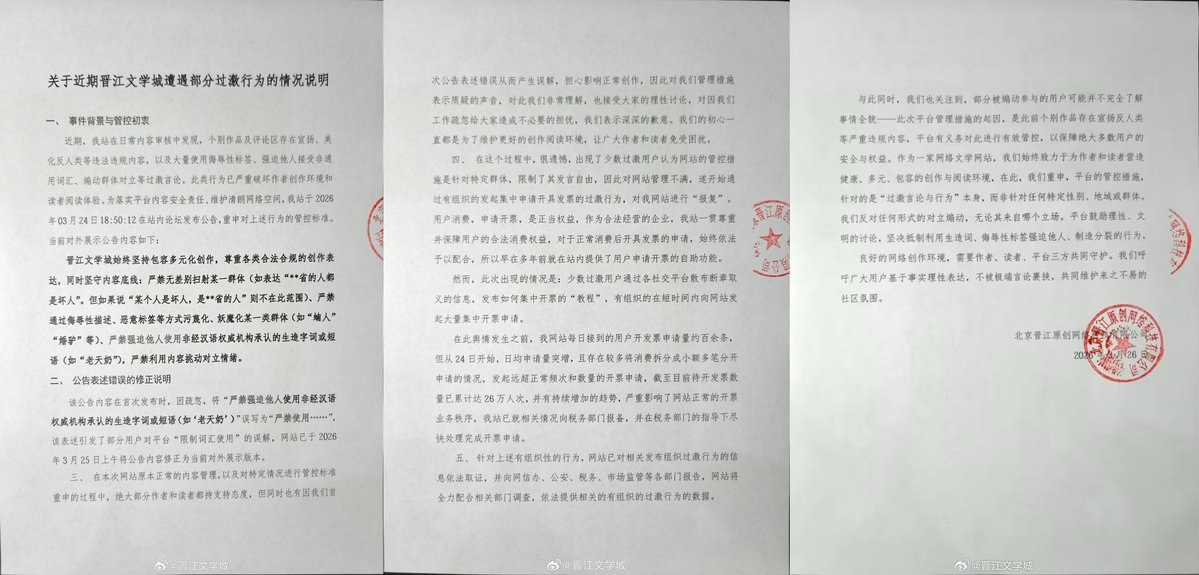 关于近期晋江文学城遭遇部分过激行为的情况说明
一、 事件背景与管控初衷
近期，我站在日常内容审核中发现，个别作品及评论区存在宣扬、美
化反人类等违法违规内容，以及大量使用侮辱性标签、强迫他人接受非通
用词汇、煽动群体对立等过激言论。此类行为已严重破坏作者创作环境和
读者阅读体验。为落实平台内容安全责任、维护清朗网络空间，我站于 2026
年03月24日18:50:12在站内论坛发布公告，重申对上述行为的管控标准。
当前对外展示公告内容如下：
晋江文学城始终坚持包容多元化创作，尊重各类合法合规的创作表
达，同时坚守内容底线：严禁无差别扫射某一群体（如表达“**省的人都
是坏人”。但如果说“某个人是坏人，是**省的人”则不在此范围）、严禁
通过侮辱性描述、恶意标签等方式污蔑化、妖魔化某一类群体（如“蝻人”
“婚驴”等）、严禁强迫他人使用非经汉语权威机构承认的生造字词或短
语（如“老天奶”），严禁利用内容挑动对立情绪。
二、 公告表述错误的修正说明
该公告内容在首次发布时，因疏忽，将“严禁强迫他人使用非经汉语
权威机构承认的生造字词或短语（如‘老天奶’）”误写为“严禁使用……”，
该表述引发了部分用户对平台“限制词汇使用”的误解，网站已于 2026
年 3 月 25 日上午将公告内容修正为当前对外展示版本。
三、 在本次网站原本正常的内容管理，以及对特定情况进行管控标准
重申的过程中，绝大部分作者和读者都持支持态度，但同时也有因我们首
次公告表述错误从而产生误解，担心影响正常创作，因此对我们管理措施
表示质疑的声音，对此我们非常理解，也接受大家的理性讨论，对因我们
工作疏忽给大家造成不必要的担忧，我们表示深深的歉意。我们的初心一
直都是为了维护更好的创作阅读环境，让广大作者和读者免受困扰。
四、 在这个过程中，很遗憾，出现了少数过激用户认为网站的管控措
施是针对特定群体，限制了其发言自由，因此对网站管理不满，遂开始通
过有组织的发起集中申请开具发票的过激行为，对我网站进行“报复”。
用户消费，申请开票，是正当权益，作为合法经营的企业，我站一贯尊重
并保障用户的合法消费权益，对于正常消费后开具发票的申请，始终依法
予以配合，所以早在多年前就在站内提供了用户申请开票的自助功能。
然而，此次出现的情况是：少数过激用户通过各社交平台散布断章取
义的信息，发布如何集中开票的“教程”，有组织的在短时间内向网站发
起大量集中开票申请。
在此舆情发生之前，我网站每日接到的用户开发票申请量约百余条，
但从 24 日开始，日均申请量突增，且存在较多将消费拆分成小额多笔分开
申请的情况，发起远超正常频次和数量的开票申请，截至目前待开发票数
量已累计达 26 万人次，并有持续增加的趋势，严重影响了网站正常的开票
业务秩序，我站已就相关情况向税务部门报备，并在税务部门的指导下尽
快处理完成开票申请。
五、 针对上述有组织性的行为，网站已对相关发布组织过激行为的信
息依法取证，并向网信办、公安、税务、市场监管等各部门报告，网站将
全力配合相关部门调查，依法提供相关的有组织的过激行为的数据。
与此同时，我们也关注到，部分被煽动参与的用户可能并不完全了解
事情全貌——此次平台管理措施的起因，是此前个别作品存在宣扬反人类
等严重违规内容，平台有义务对此进行有效管控，以保障绝大多数用户的
安全与权益。作为一家网络文学网站，我们始终致力于为作者和读者营造
健康、多元、包容的创作与阅读环境，在此，我们重申，平台的管控措施，
针对的是“过激言论与行为”本身，而非针对任何特定性别、地域或群体。
我们反对任何形式的对立煽动，无论其来自哪个立场。平台鼓励理性、文
明的讨论，坚决抵制利用生造词、侮辱性标签强迫他人、制造分裂的行为。
良好的网络创作环境，需要作者、读者、平台三方共同守护。我们呼
吁广大用户基于事实理性表达，不被极端言论裹挟，共同维护来之不易的
社区氛围。
北京晋江原创网络科技有限公司
2026年3月26日
@晋江文学城
@晋江文学城
@晋江文学城